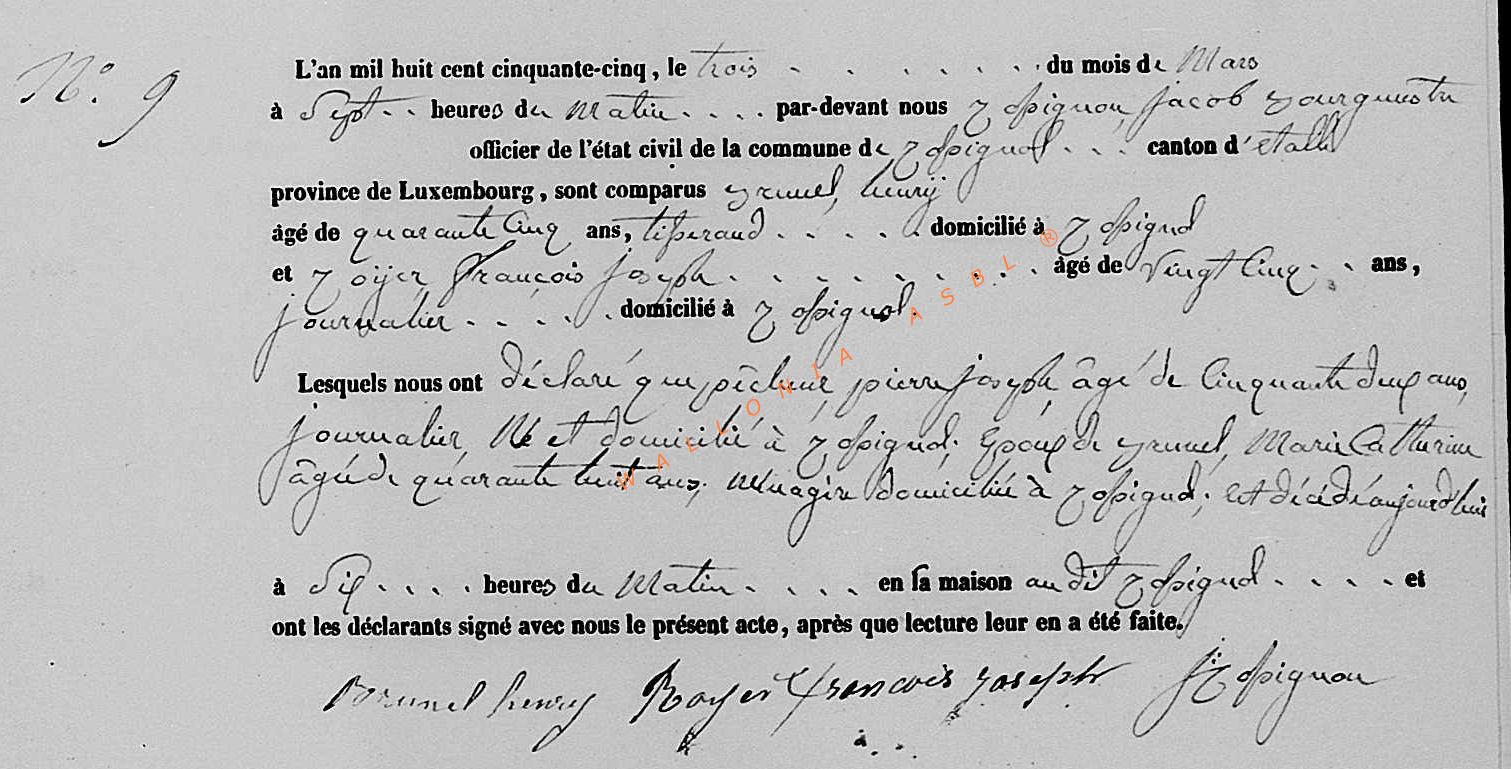 N° 9
L'an mil huit cent cinquante-cinq, le trois . . . . . . . du mois de Mars
à Sept . . heures du Matin . . . . par-devant nous Rossignon, Jacob Bourguestre
officier de l'état civil de la commune de Rossignol . . . canton d'étalle
province de Luxembourg, sont comparus Brunel, henrÿ
âgé de quarante Cinq ans, tisserand . . . . . domicilié à Rossignol
et Royer, François Joseph . . . . . . . . . âgé de Vingt Cinq . . ans,
journalier . . . . . domicilié à Rossignol.
Lesquels nous ont déclaré que pierre Joseph, âgé de Cinquante deux ans,
journalier, Né et domicilié à Rossignol. Epoux de Brunel, Marie Catherine
âgée de quarante huit ans, Ménagère domiciliée à Rossignol, Est décédé aujourd'hui
à Six . . . . heures du Matin . . . . en sa maison au dit Rossignol . . . . et
ont les déclarants signé avec nous le présent acte, après que lecture leur en a été faite.
Brunel henry Royer francois Joseph J Rossignon
WALLONIA ASBL ®